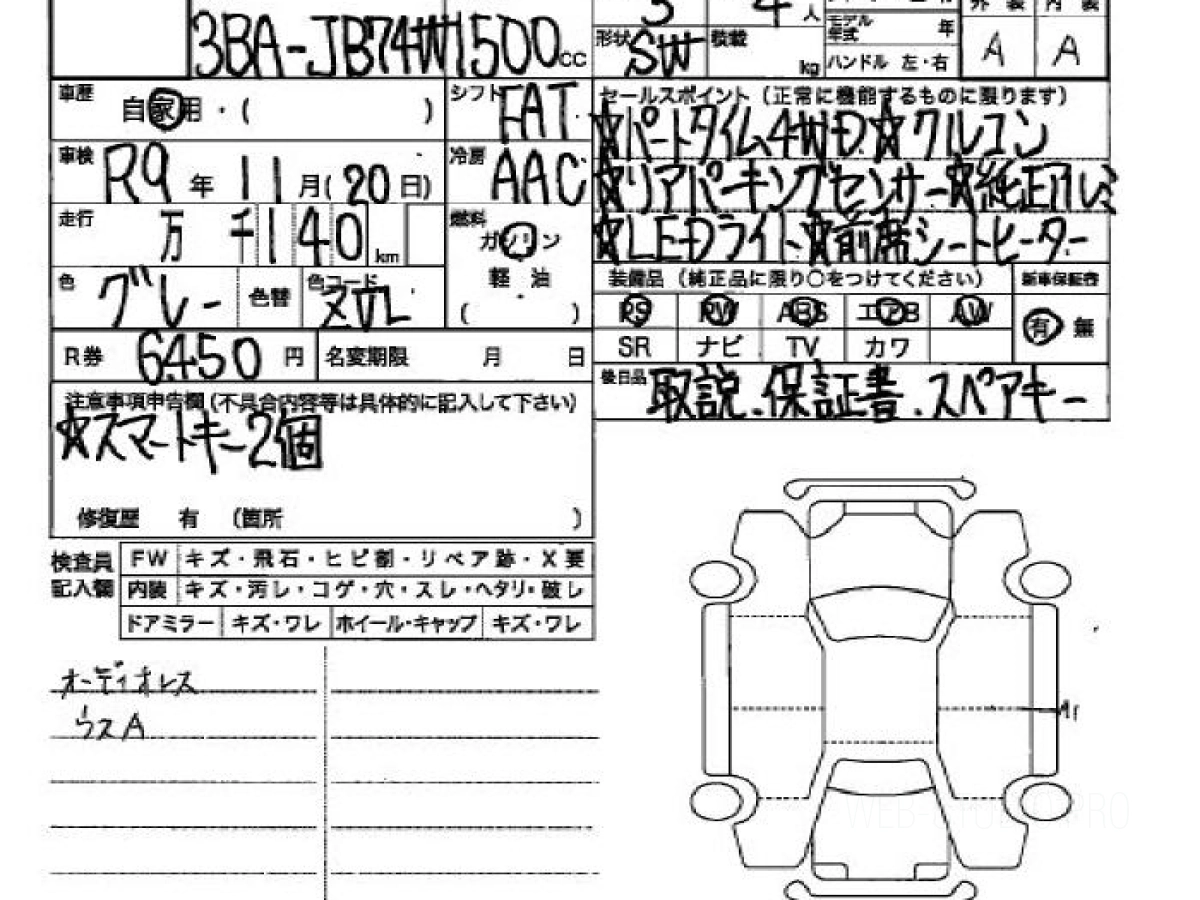 3 4 人
外装 内装
3BA-JB74W 1500 cc
形状 SW 積載 kg
モデル年式 年
ハンドル 左・右
A A
車歴 自家用・( )
シフト FAT
セールスポイント(正常に機能するものに限ります)
☆パートタイム4WD☆クルコン
車検 R9年11月(20日)
冷房 AAC
☆リアパーキングセンサー☆純正アルミ
走行 万千140km
燃料 ガソリン
軽油
( )
☆LEDライト☆前席シートヒーター
色 グレー 色替 色コード ZVL
装備品(純正品に限り○をつけてください) 新車保証書
PS PW ABS エアB AW 有 無
SR ナビ TV カワ
R券 6450円 名変期限 月 日
後日品 取説、保証書、スペアキー
注意事項申告欄(不具合内容等は具体的に記入して下さい)
☆スマートキー2個
修復歴 有 (箇所 )
検査員記入欄
FW キズ・飛石・ヒビ割・リペア跡・X要
内装 キズ・汚レ・コゲ・穴・スレ・ヘタリ・破レ
ドアミラー キズ・ワレ ホイール・キャップ キズ・ワレ
オーディオレス
ウスA
A1